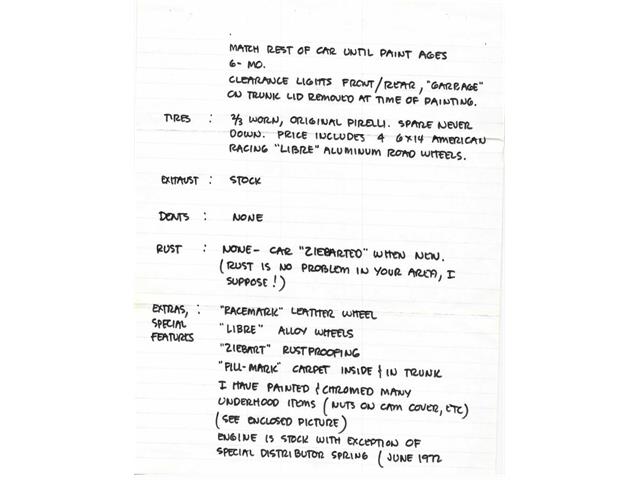 MATCH REST OF CAR UNTIL PAINT AGES
6- MO.
CLEARANCE LIGHTS FRONT/REAR, "GARBAGE"
ON TRUNK LID REMOVED AT TIME OF PAINTING.
TIRES : 2/3 WORN, ORIGINAL PIRELLI. SPARE NEVER
DOWN. PRICE INCLUDES 4 6X14 AMERICAN
RACING "LIBRE" ALUMINUM ROAD WHEELS.
EXHAUST : STOCK
DENTS : NONE
RUST : NONE- CAR "ZIEBARTED" WHEN NEW.
(RUST IS NO PROBLEM IN YOUR AREA, I
SUPPOSE!)
EXTRAS, : "RACEMARK" LEATHER WHEEL
SPECIAL "LIBRE" ALLOY WHEELS
FEATURES "ZIEBART" RUSTPROOFING
"FILL-MARK" CARPET INSIDE & IN TRUNK
I HAVE PAINTED & CHROMED MANY
UNDERHOOD ITEMS (NUTS ON CAM COVER, ETC)
(SEE ENCLOSED PICTURE)
ENGINE IS STOCK WITH EXCEPTION OF
SPECIAL DISTRIBUTOR SPRING (JUNE 1972